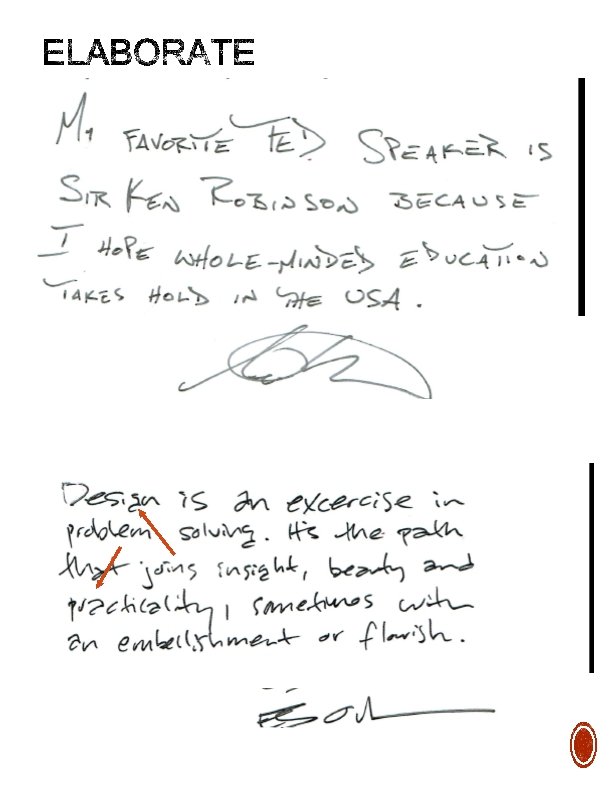 ELABORATE
MY FAVORITE TED SPEAKER IS
SIR KEN ROBINSON BECAUSE
I HOPE WHOLE-MINDED EDUCATION
TAKES HOLD IN THE USA.
Design is an excercise in
problem solving. It's the path
that joins insight, beauty and
practicality, sometimes with
an embellishment or flourish.